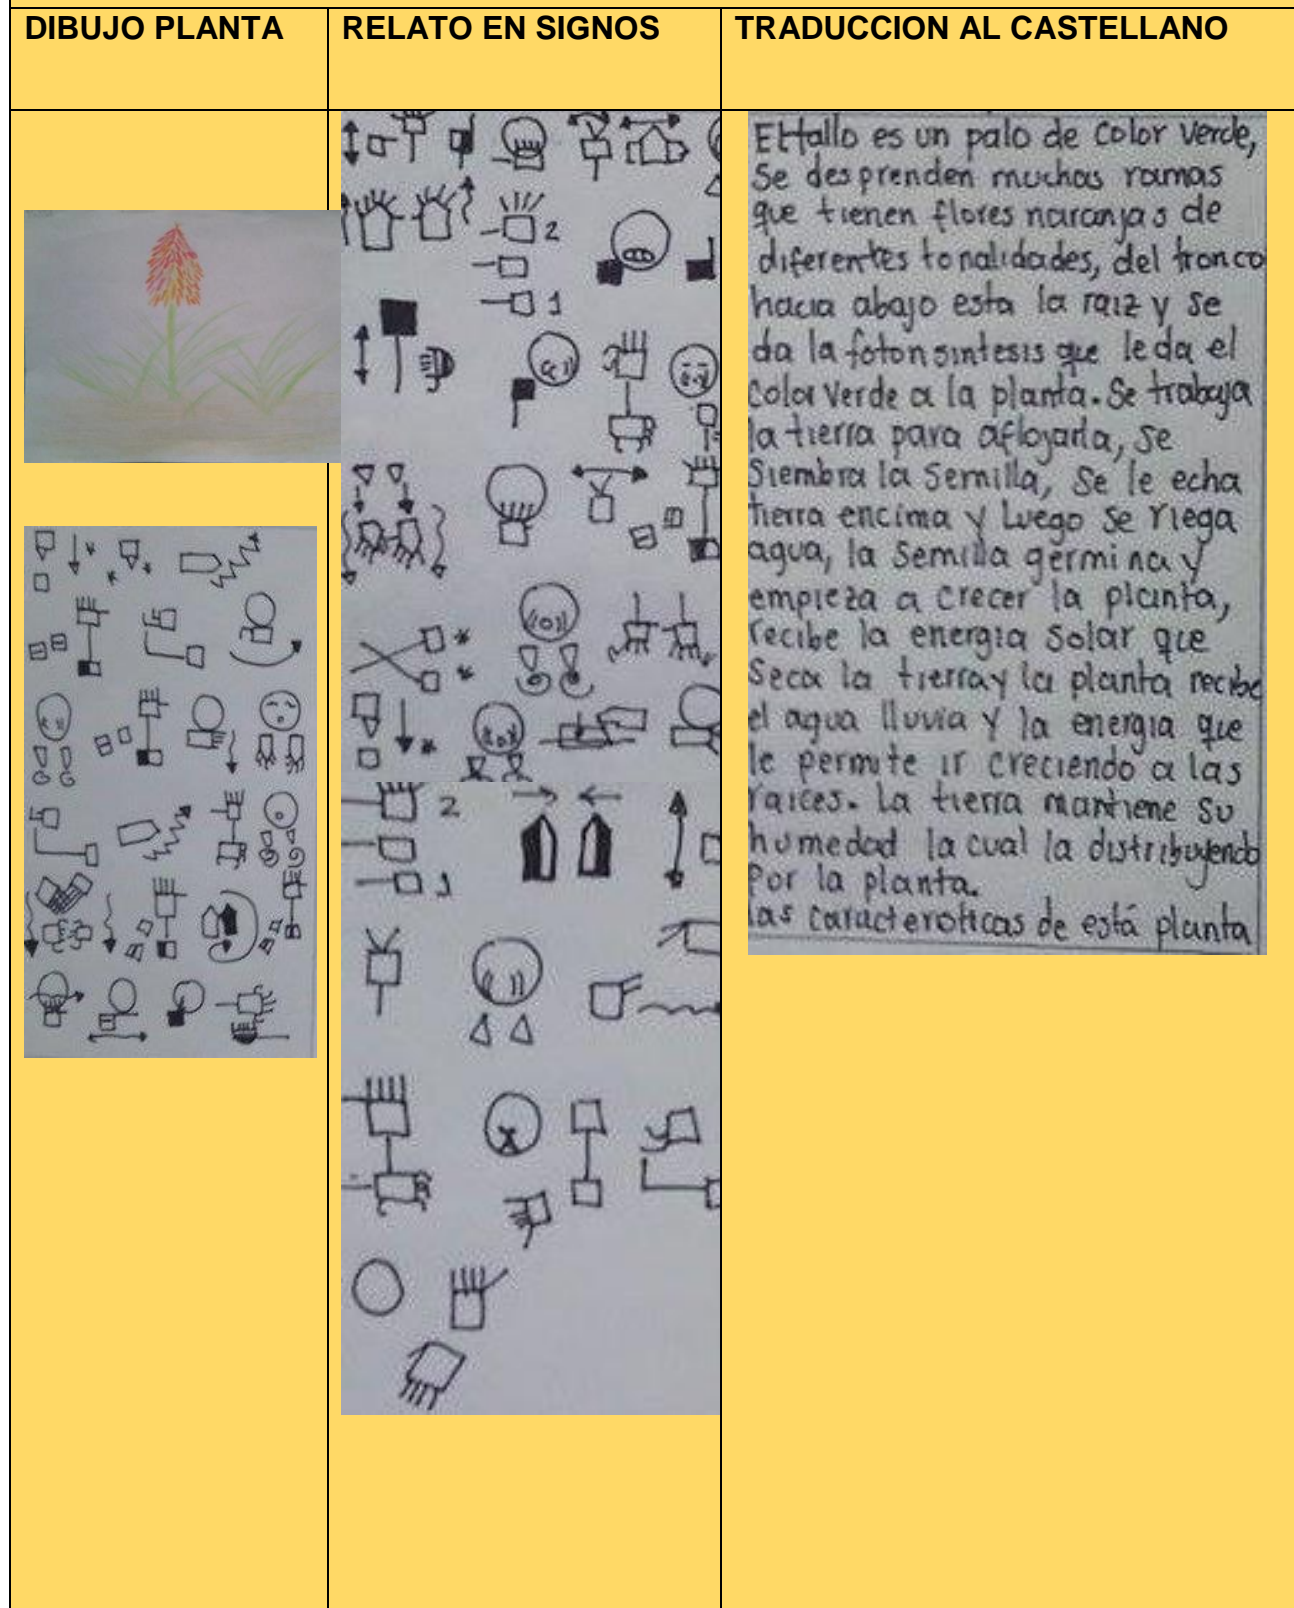 DIBUJO PLANTA
RELATO EN SIGNOS
TRADUCCION AL CASTELLANO
2
1
2
1
El tallo es un palo de color verde,
Se desprenden muchas ramas
que tienen flores naranjas de
diferentes tonalidades, del tronco
hacia abajo esta la raiz y se
da la fotonsintesis que le da el
color verde a la planta. Se trabaja
la tierra para aflojarla, se
Siembra la semilla, Se le echa
tierra encima y luego se riega
agua, la semilla germina y
empieza a crecer la planta,
recibe la energia solar que
seca la tierra y la planta recibe
el agua lluvia y la energia que
le permite ir creciendo a las
raices. La tierra mantiene su
humedad la cual la distribuyendo
Por la planta.
las caracteroticas de está planta